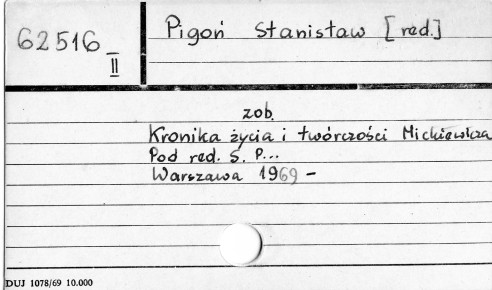 62516
II
Pigoń Stanisław [red.]
zob.
Kronika życia i twórczości Mickiewicza
Pod red. S. P...
Warszawa 1969 -
DUJ 1078/69 10.000